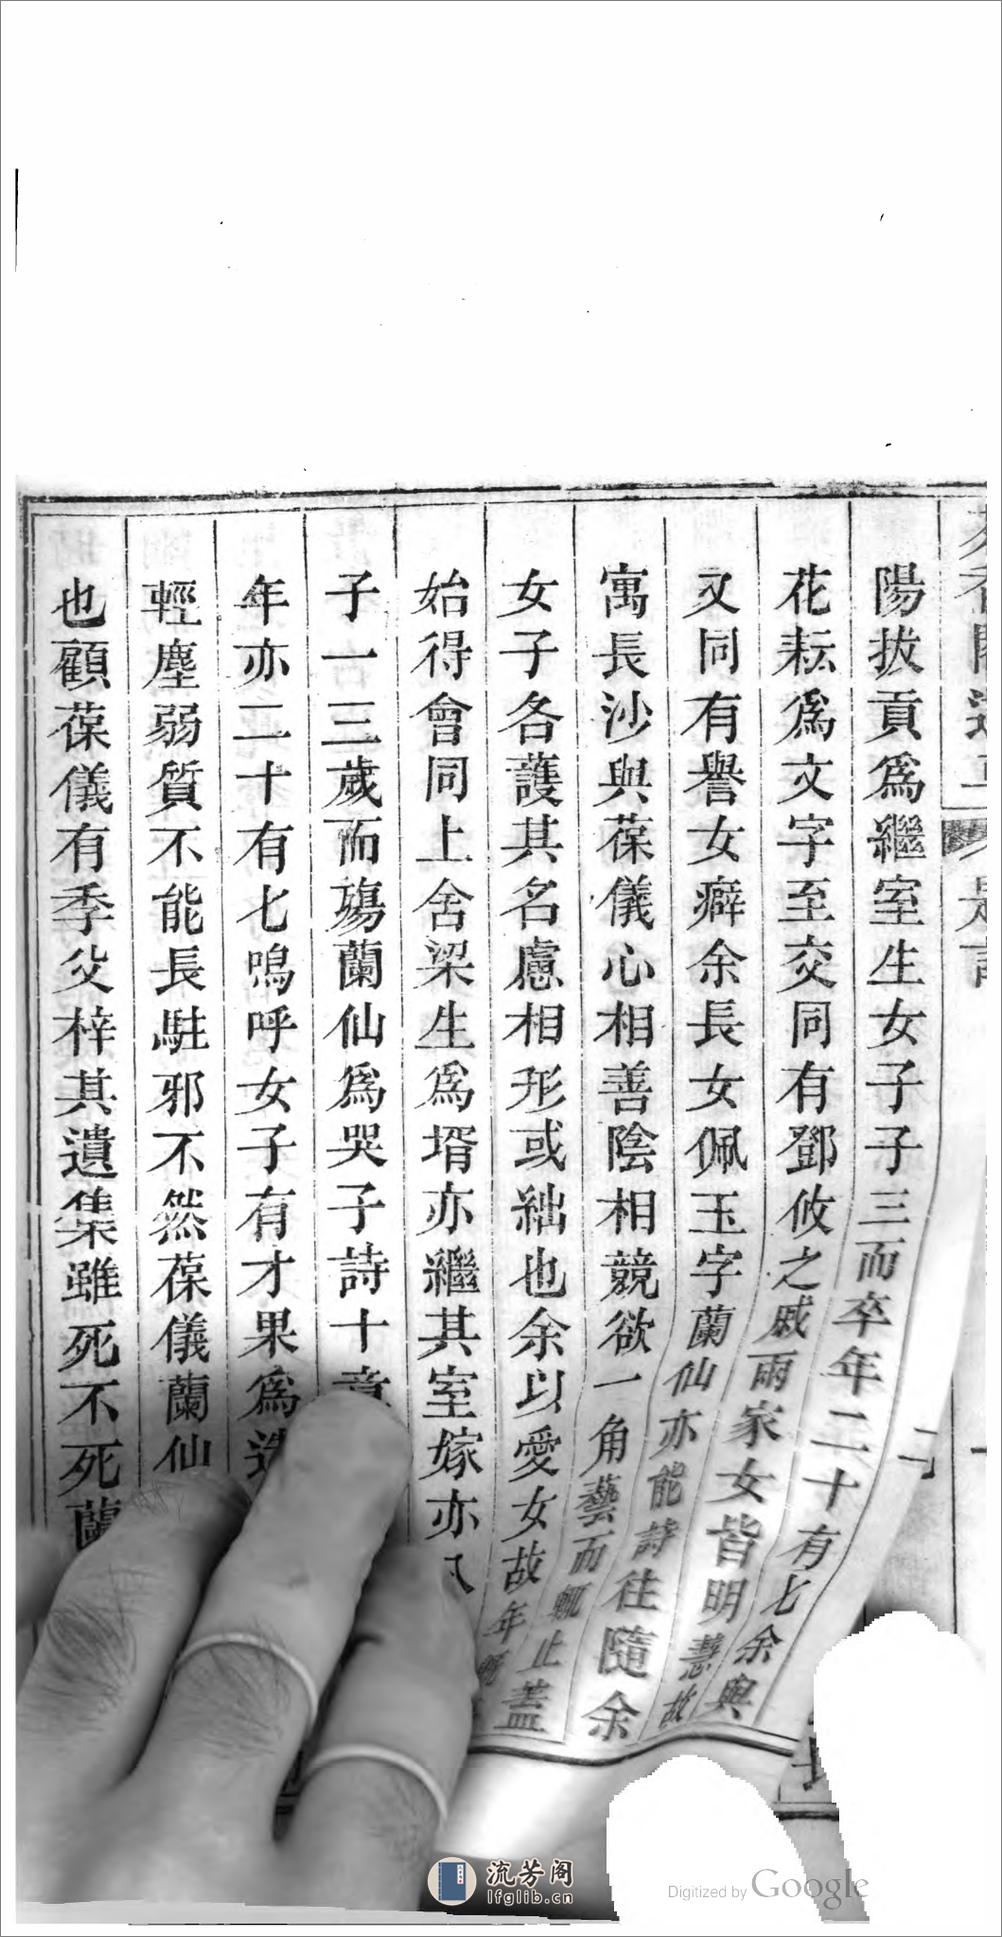 陽拔貢爲繼室生女子子三而卒年二十有七余與
花耘爲文字至交同有鄧攸之戚兩家女皆明慧故
又同有譽女癖余長女佩玉字蘭仙亦能詩往隨余
寓長沙與葆儀心相善陰相競欲一角藝而輒止蓋
女子各護其名慮相形或絀也余以愛女故年
始得會同上舍梁生爲壻亦繼其室嫁亦
子一三歲而殤蘭仙爲哭子詩十章
年亦二十有七嗚呼女子有才果爲造
輕塵弱質不能長駐邪不然葆儀蘭仙
也顧葆儀有季父梓其遺集雖死不死蘭
流芳阁
lfglib.cn
Digitized by Google